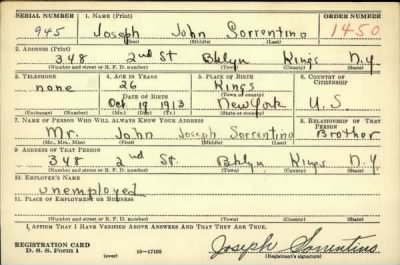 SERIAL NUMBER 1. NAME (Print) ORDER NUMBER
945 Joseph John Sorrentino 1450
(First) (Middle) (Last)
2. ADDRESS (Print)
348 2nd St Bklyn Kings N.Y
(Number and street or R. F. D. number) (Town) (County) (State)
3. TELEPHONE 4. AGE IN YEARS 5. PLACE OF BIRTH 6. COUNTRY OF CITIZENSHIP
none 26 Kings
DATE OF BIRTH (Town or county)
Oct 19 1913 New York U.S.
(Exchange) (Number) (Mo.) (Day) (Yr.) (State or country)
7. NAME OF PERSON WHO WILL ALWAYS KNOW YOUR ADDRESS 8. RELATIONSHIP OF THAT PERSON
Mr. John Joseph Sorrentino Brother
(Mr., Mrs., Miss) (First) (Middle) (Last)
9. ADDRESS OF THAT PERSON
348 2nd St. Bklyn Kings N.Y
(Number and street or R. F. D. number) (Town) (County) (State)
10. EMPLOYER'S NAME
unemployed
11. PLACE OF EMPLOYMENT OR BUSINESS
(Number and street or R. F. D. number) (Town) (County) (State)
I AFFIRM THAT I HAVE VERIFIED ABOVE ANSWERS AND THAT THEY ARE TRUE.
REGISTRATION CARD
D. S. S. Form 1 (over) 16—17105 Joseph Sorrentino
(Registrant's signature)